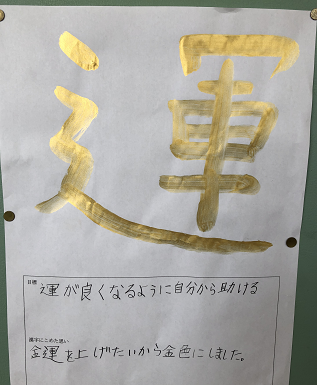 運
目標
運が良くなるように自分から助ける
漢字にこめた思い
金運を上げたいから金色にしました。